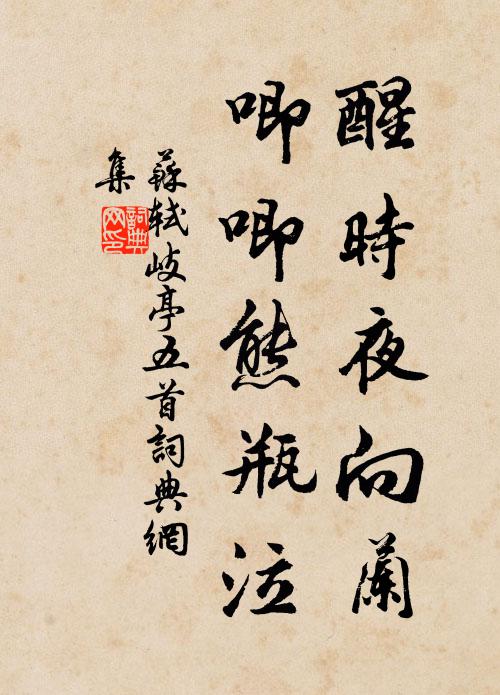 醒時夜向蘭
唧唧熊瓶泣
蘇軾岐亭五首詞典網
集
詞典
网印